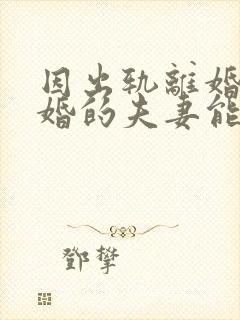 因出轨離婚
婚的夫妻能
鄧攀